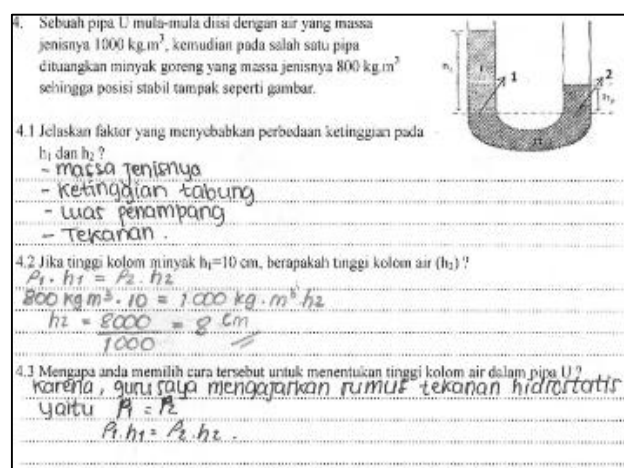 4. Sebuah pipa U mula-mula diisi dengan air yang massa
jenisnya 1000 kg.m³, kemudian pada salah satu pipa
dituangkan minyak goreng yang massa jenisnya 800 kg.m³
sehingga posisi stabil tampak seperti gambar.
1
2
4.1 Jelaskan faktor yang menyebabkan perbedaan ketinggian pada
h₁ dan h₂ ?
- massa jenisnya
- ketinggian tabung
- luas penampang
- Tekanan .
4.2 Jika tinggi kolom minyak h₁=10 cm, berapakah tinggi kolom air (h₂) ?
ρ₁ . h₁ = ρ₂ . h₂
800 kg m³ . 10 = 1000 kg . m³ h₂
h₂ = 8000 = 8 cm
1000
4.3 Mengapa anda memilih cara tersebut untuk menentukan tinggi kolom air dalam pipa U ?
karena, guru saya mengajarkan rumus tekanan hidrostatis
yaitu P₁ = P₂
ρ₁.h₁ = ρ₂.h₂ .